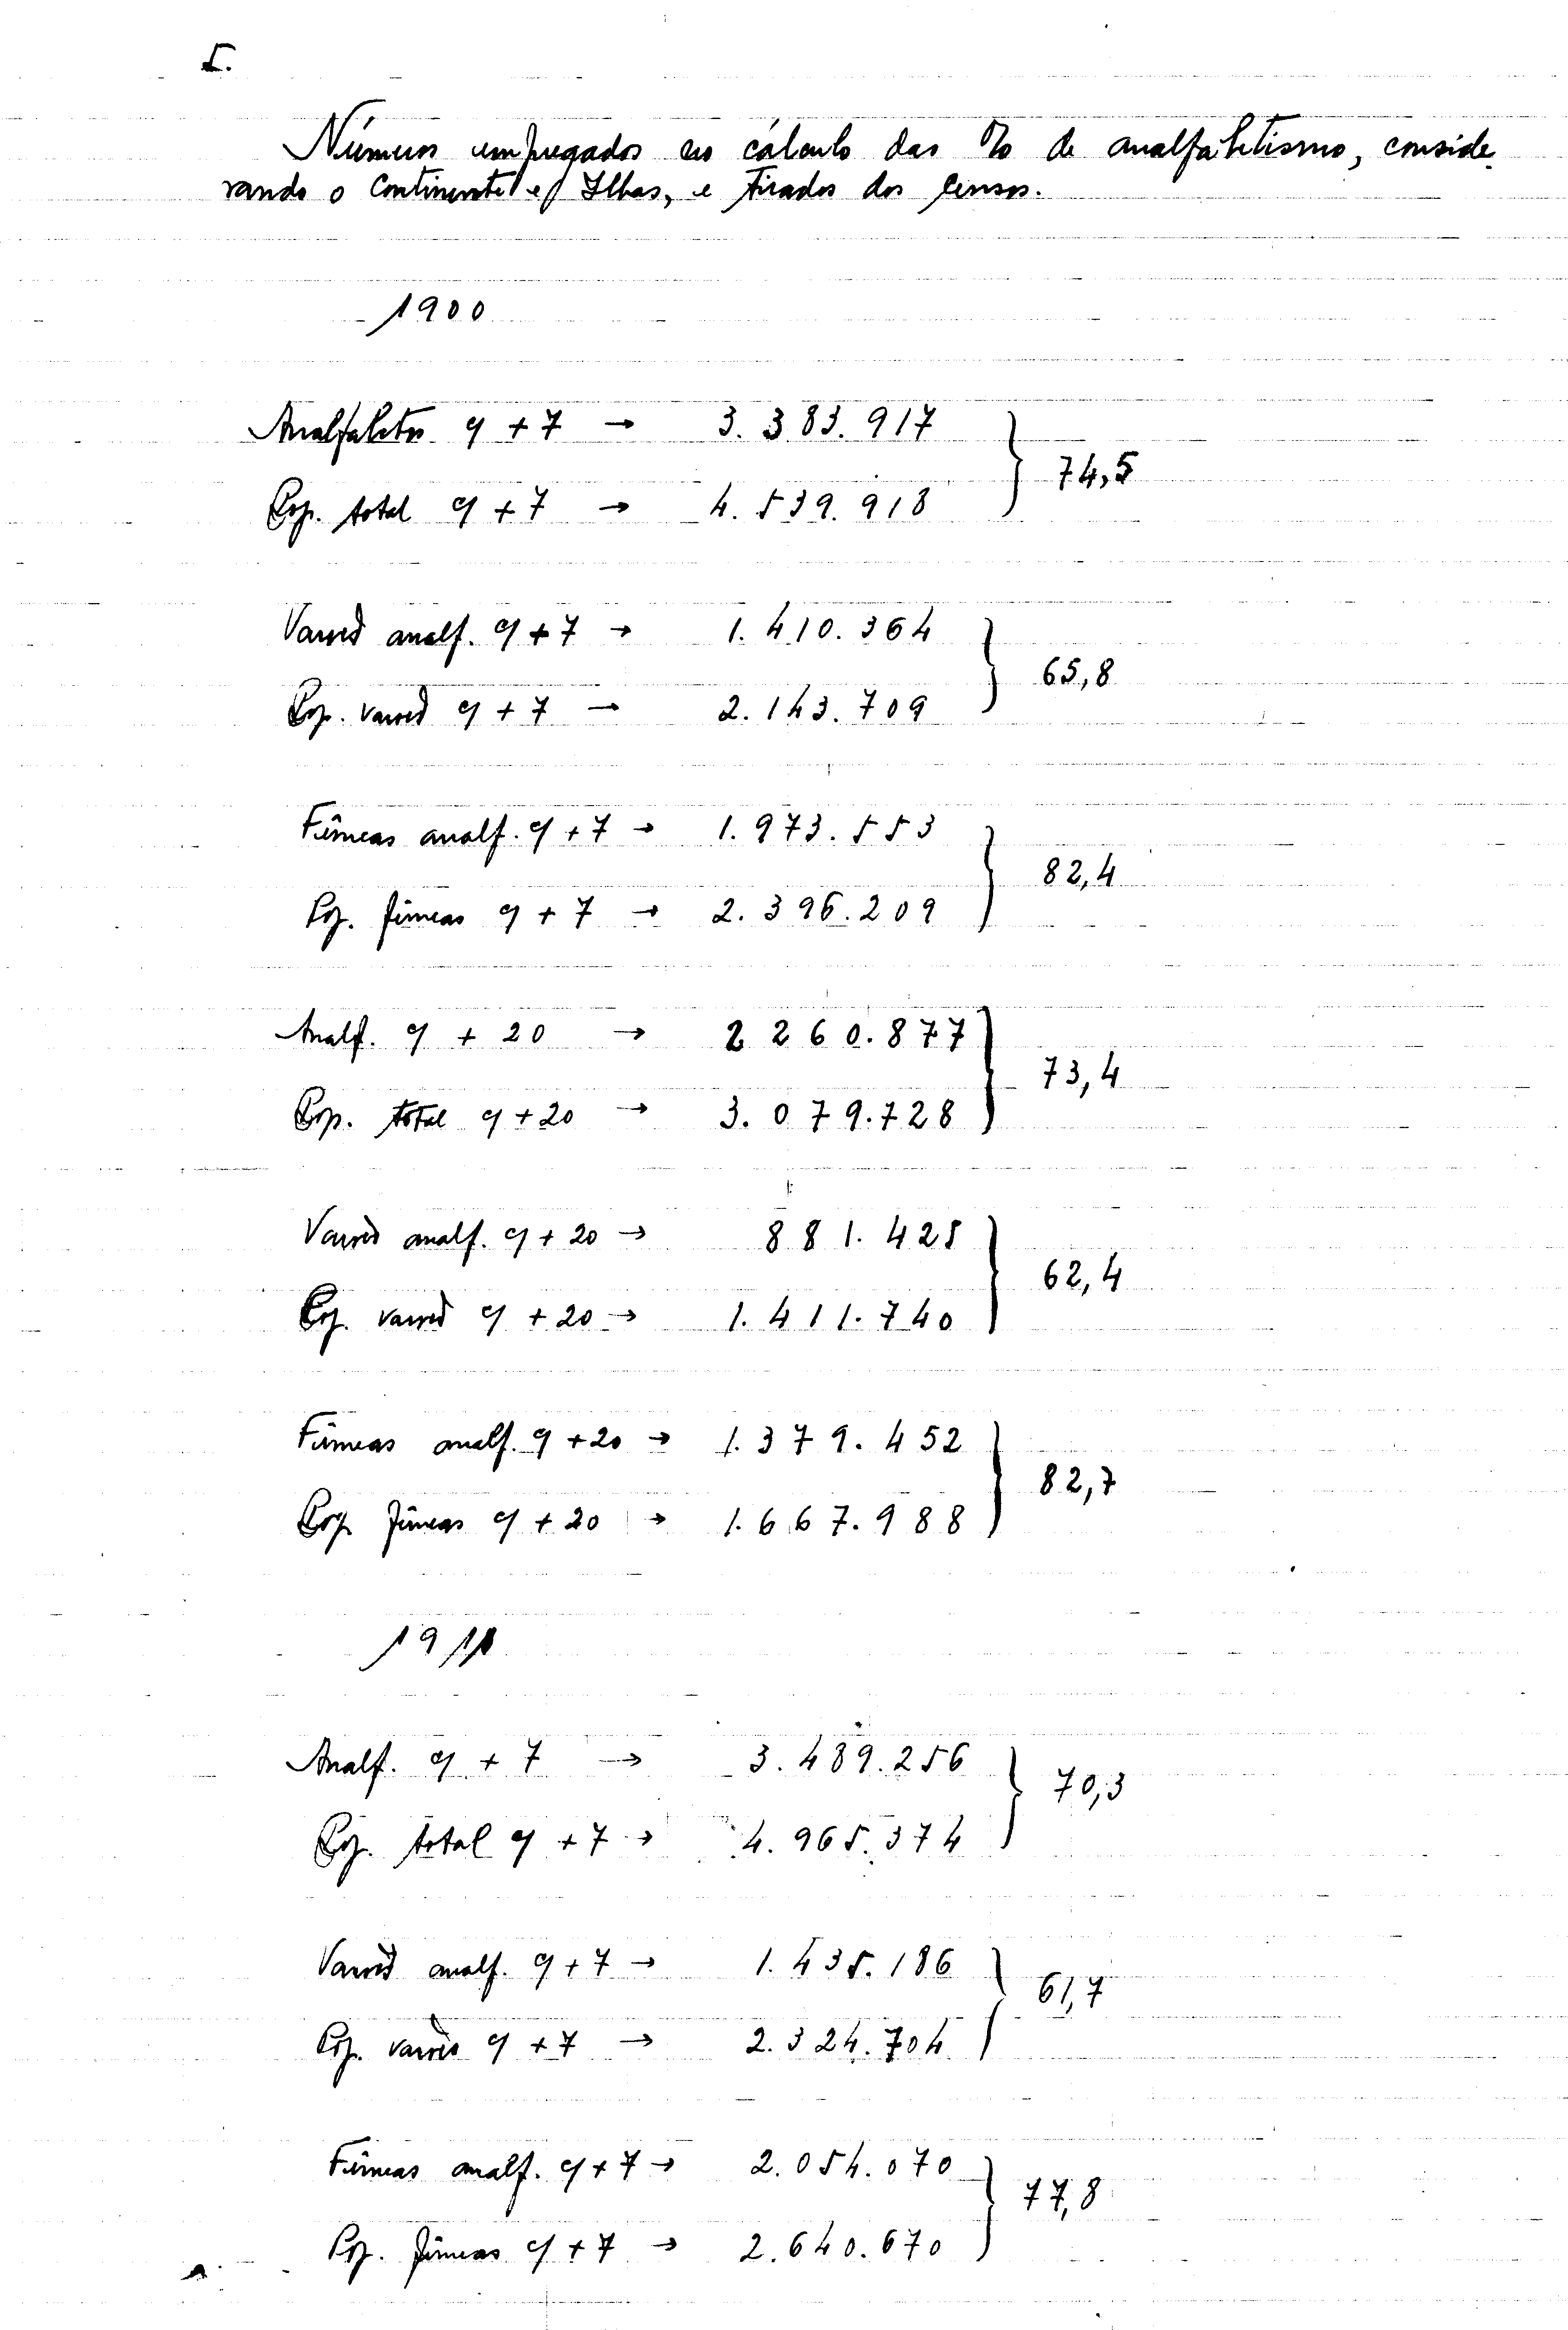 I.
Números empregados no cálculo das % de analfabetismo, conside-
rando o Continente e Ilhas, e tirados dos censos.
1900
Analfabetos 9 +7 → 3.383.917
74,5
Pop. total 9 +7 → 4.539.918
Varões analf. 9 +7 → 1.410.364
65,8
Pop. varões 9 +7 → 2.143.709
Fêmeas analf. 9 +7 → 1.973.553
82,4
Pop. fêmeas 9 +7 → 2.396.209
Analf. 9 + 20 → 2 260.877
73,4
Pop. total 9 +20 → 3.079.728
Varões analf. 9 +20 → 881.425
62,4
Pop. varões 9 +20 → 1.411.740
Fêmeas analf. 9 +20 → 1.379.452
82,7
Pop. fêmeas 9 +20 → 1.667.988
1911
Analf. 9 + 7 → 3.489.256
70,3
Pop. total 9 +7 → 4.965.374
Varões analf. 9 +7 → 1.435.186
61,7
Pop. varões 9 +7 → 2.324.704
Fêmeas analf. 9 +7 → 2.054.070
77,8
Pop. fêmeas 9 +7 → 2.640.670